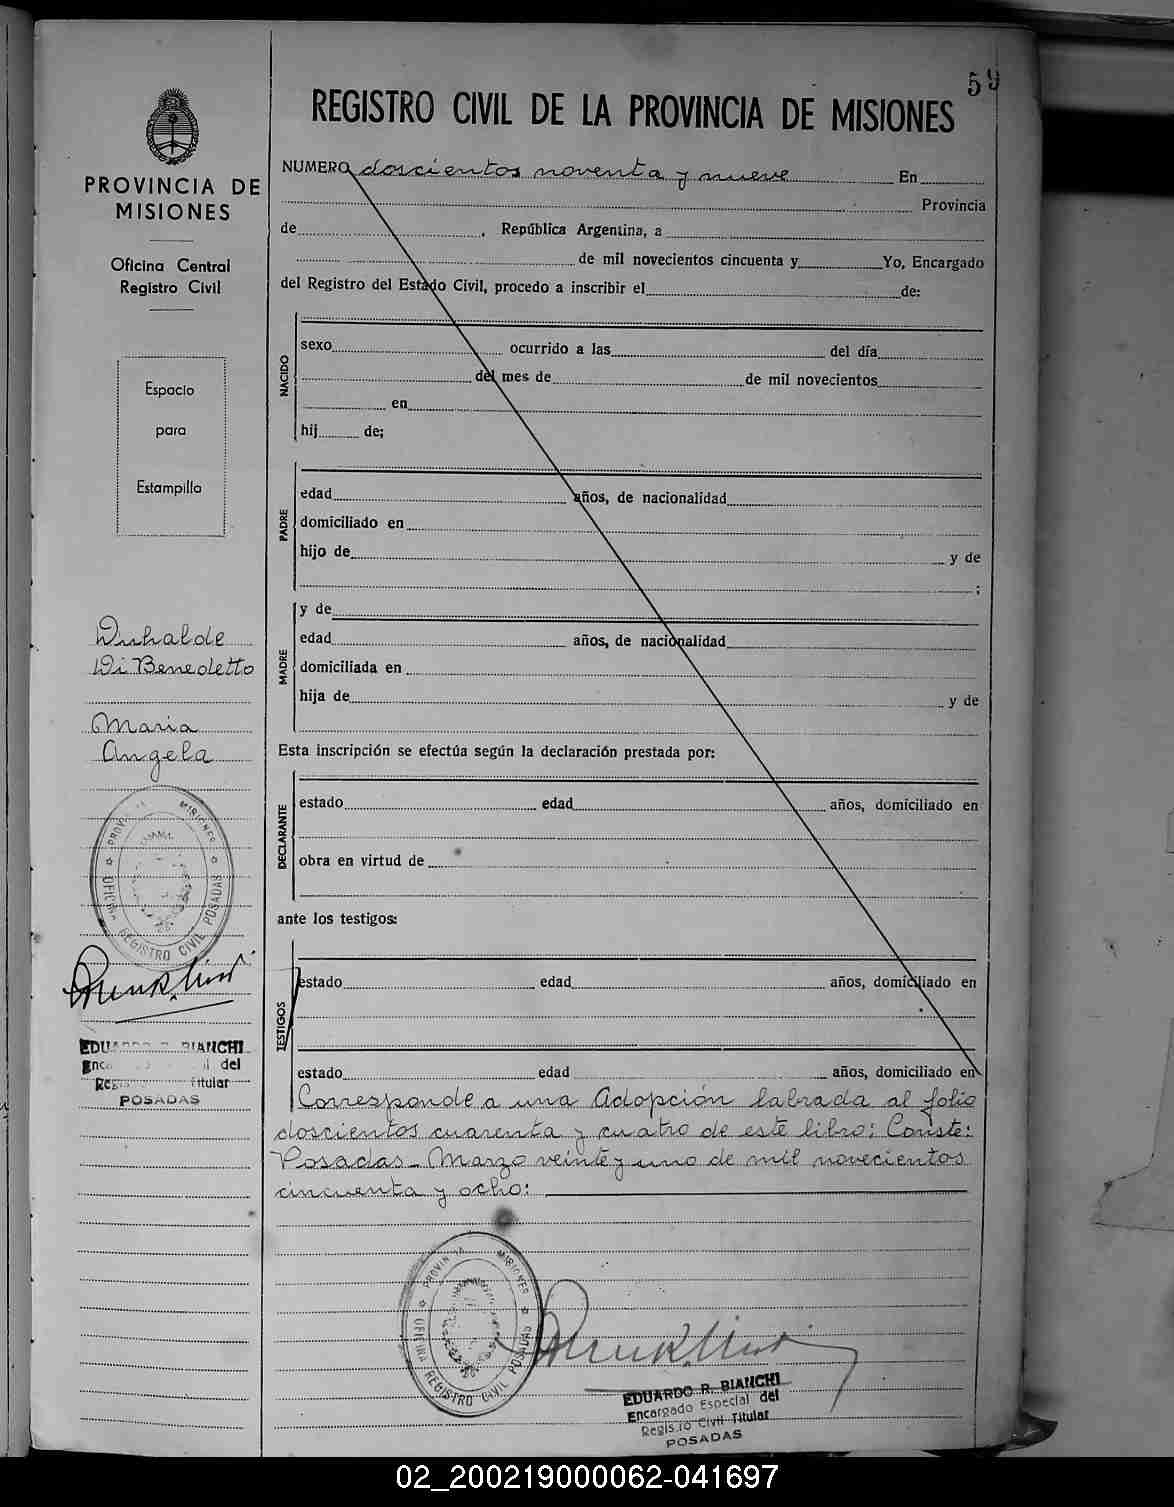 59
REGISTRO CIVIL DE LA PROVINCIA DE MISIONES
PROVINCIA DE
MISIONES
Oficina Central
Registro Civil
Espacio
para
Estampilla
Duhalde
Di Benedetto
Maria
Angela
PROVINCIA MISIONES
OFICINA REGISTRO CIVIL POSADAS
EDUARDO R. BIANCHI
Encargado Especial del
Registro Civil Titular
POSADAS
NUMERO doscientos noventa y nueve En
Provincia
de , República Argentina, a
de mil novecientos cincuenta y Yo, Encargado
del Registro del Estado Civil, procedo a inscribir el de:
NACIDO
sexo ocurrido a las del día
del mes de de mil novecientos
en
hij de;
PADRE
edad años, de nacionalidad
domiciliado en
hijo de y de
;
MADRE
y de
edad años, de nacionalidad
domiciliada en
hija de y de
Esta inscripción se efectúa según la declaración prestada por:
DECLARANTE
estado edad años, domiciliado en
obra en virtud de
ante los testigos:
TESTIGOS
estado edad años, domiciliado en
estado edad años, domiciliado en
Corresponde a una Adopción labrada al folio
doscientos cuarenta y cuatro de este libro: Conste:
Posadas - Marzo veinte y uno de mil novecientos
cincuenta y ocho:
PROVINCIA MISIONES
OFICINA REGISTRO CIVIL POSADAS
EDUARDO R. BIANCHI
Encargado Especial del
Registro Civil Titular
POSADAS
02_200219000062-041697